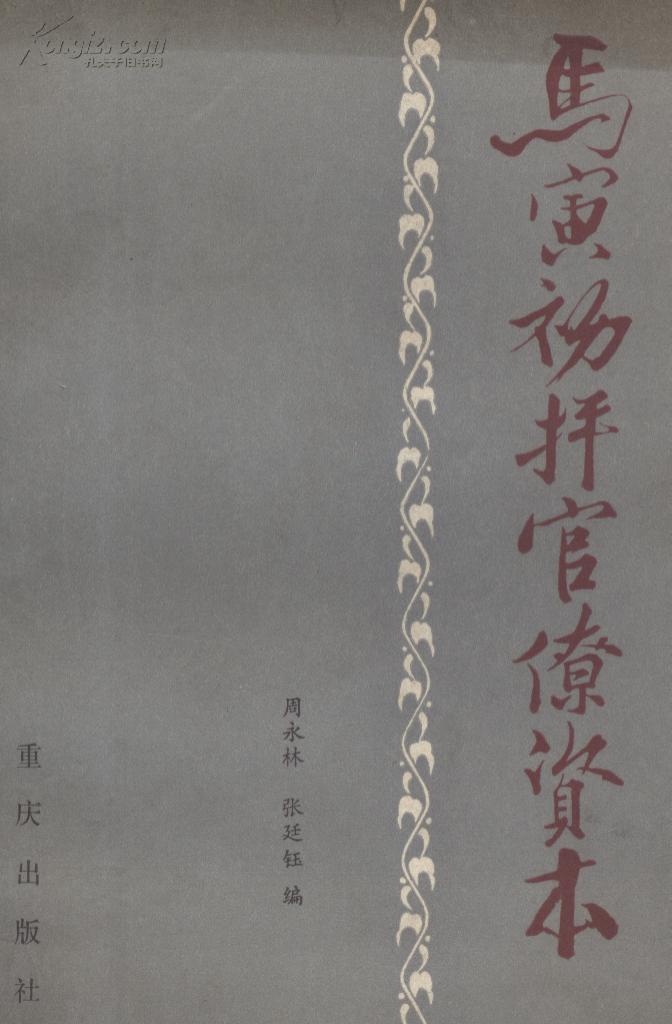 馬寅初抨官僚資本
周永林 张廷钰 编
重庆出版社
Kongfz.com
孔夫子旧书网